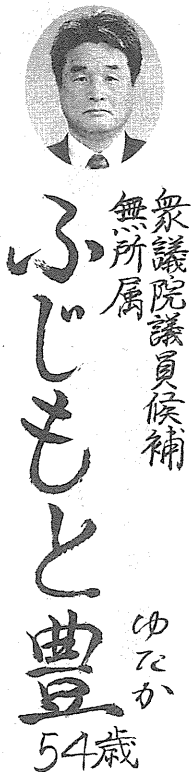 衆議院議員候補
無所属
ふじもと豊
ゆたか
54歳